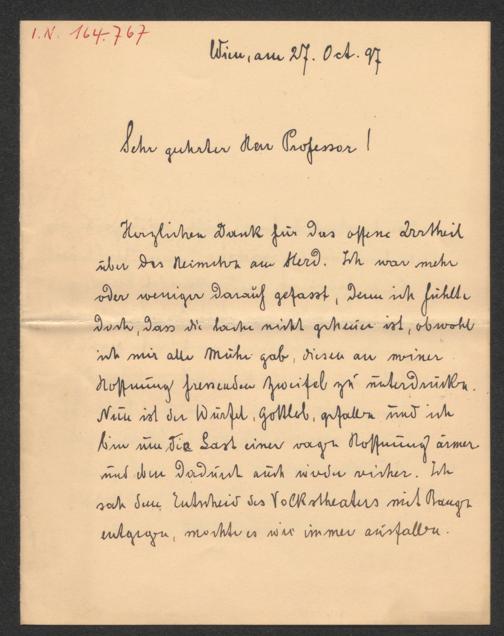 I.N. 164.767
Wien, am 27. Oct. 97
Sehr geehrter Herr Professor!
Herzlichen Dank für das offene Urtheil
über das Heimchen am Herd. Ich war mehr
oder weniger darauf gefasst, denn ich fühlte
doch, dass die Sache nicht geheuer ist, obwohl
ich mir alle Mühe gab, diesen an meiner
Hoffnung fressenden Zweifel zu unterdrücken.
Nun ist der Würfel, gottlob, gefallen und ich
bin um die Last einer vagen Hoffnung ärmer
und eben dadurch auch wieder reicher. Ich
sah dem Entscheid des Volkstheaters mit Bangen
entgegen, mochte es wie immer ausfallen.